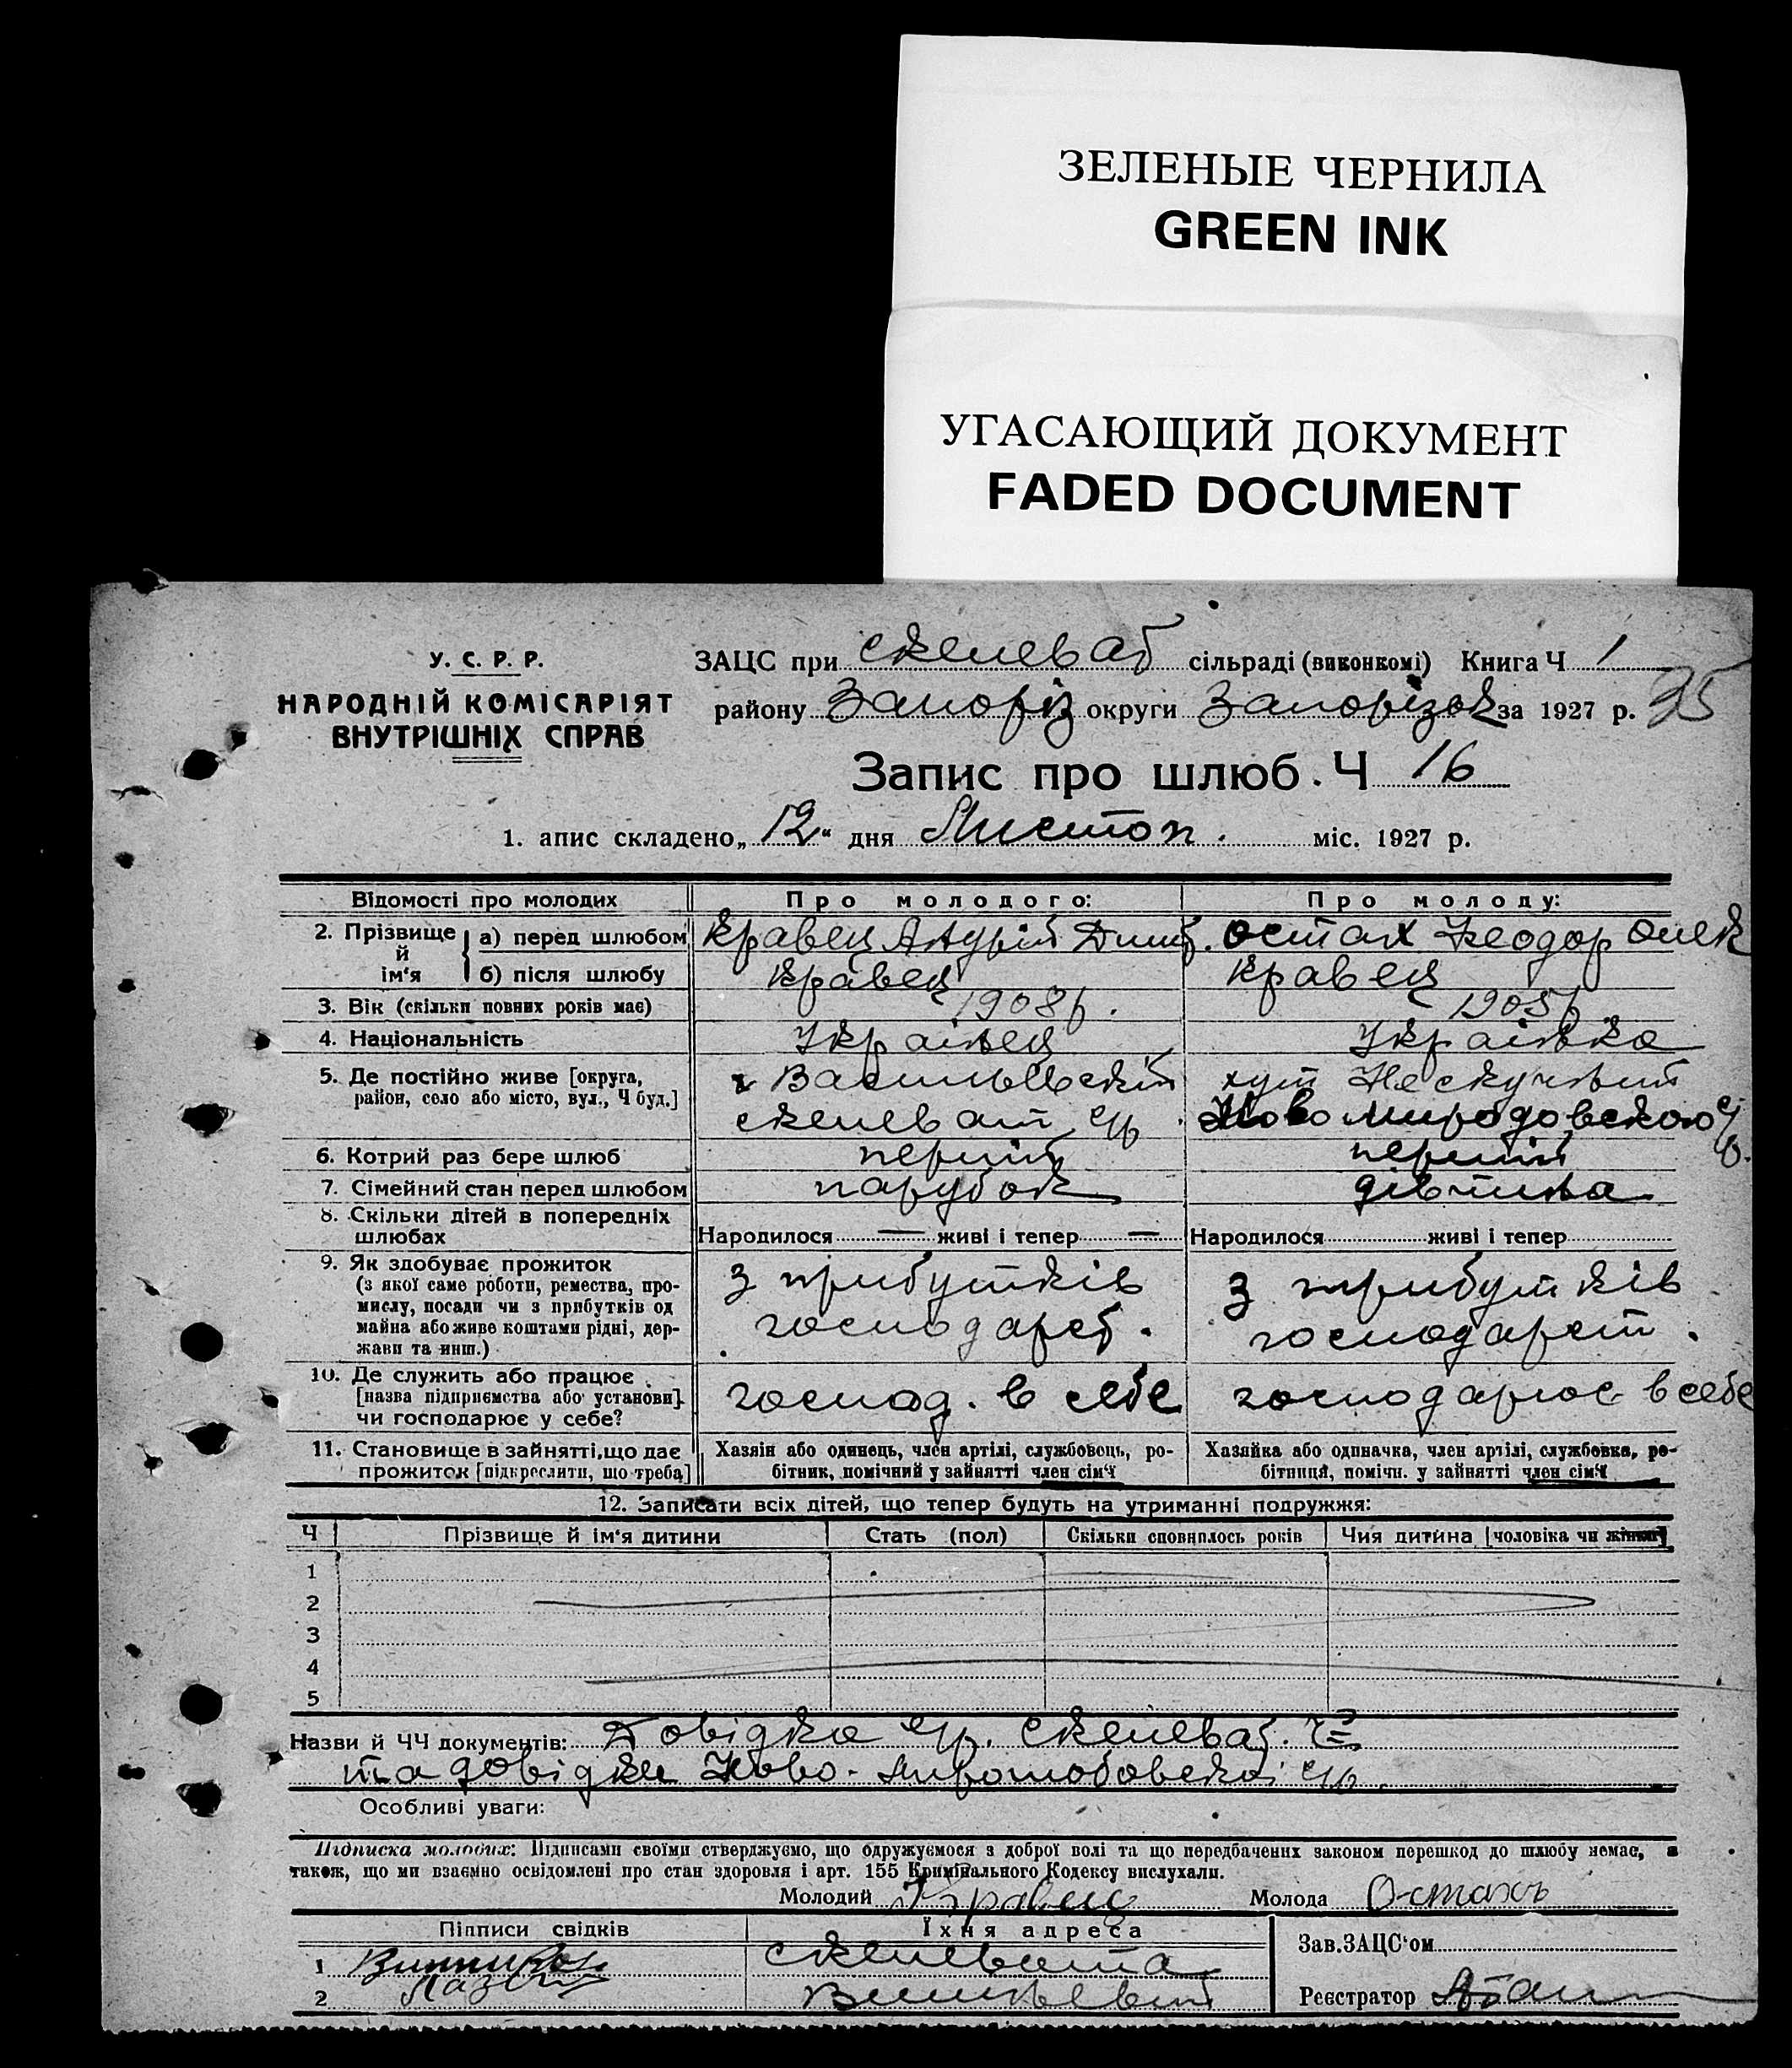 ЗЕЛЕНЫЕ ЧЕРНИЛА
GREEN INK
УГАСАЮЩИЙ ДОКУМЕНТ
FADED DOCUMENT
У. С. Р. Р.
НАРОДНІЙ КОМІСАРІЯТ
ВНУТРІШНІХ СПРАВ
ЗАЦС при Скелеват сільраді (виконкомі) Книга Ч 1
району Запоріз округи Запорізьк за 1927 р. 35
Запис про шлюб. Ч 16
1. апис складено „12“ дня Листоп. міс. 1927 р.
Відомості про молодих Про молодого: Про молоду:
2. Прізвище й ім'я а) перед шлюбом Кравец Андрій Дмит. Остах Феодор Олек
б) після шлюбу Кравец Кравец
3. Вік (скільки повних років має) 1908 р. 1905 р
4. Національність Українец Українка
5. Де постійно живе [округа, хут
район, село або місто, вул., Ч буд.] скелеват с/р
6. Котрий раз бере шлюб перший перший
7. Сімейний стан перед шлюбом парубок дівчина
8. Скільки дітей в попередніх
шлюбах Народилося — живі і тепер — Народилося живі і тепер
9. Як здобуває прожиток
(з якої саме роботи, ремества, про-
мислу, посади чи з прибутків од
майна або живе коштами рідні, дер-
жави та инш.)
з прибутків з прибутків
господарст. господарст.
10. Де служить або працює
[назва підприємства або установи]
чи господарює у себе?
господ. в себе господарює в себе
11. Становище в зайнятті, що дає
прожиток [підкреслити, що треба]
Хазяін або одинець, член артілі, службовець, ро-
бітник, помічний у зайнятті член сім'ї
Хазяйка або одиначка, член артілі, службовка, ро-
бітниця, помічн. у зайнятті член сім'ї
12. Записати всіх дітей, що тепер будуть на утриманні подружжя:
Ч Прізвище й ім'я дитини Стать (пол) Скільки сповнилось років Чия дитина [чоловіка чи жінки]
1
2
3
4
5
Назви й ЧЧ документів: Довідка с/р. Скелеват.
та довідки Ново-
Особливі уваги:
Підписка молодих: Підписами своїми стверджуємо, що одружуємося з доброї волі та що передбачених законом перешкод до шлюбу немає, а
також, що ми взаємно освідомлені про стан здоровля і арт. 155 Кримінального Кодексу вислухали.
Молодий Кравец Молода Остахъ
Підписи свідків Їхня адреса
1 Скелевата Зав. ЗАЦС'ом
2 Реєстратор